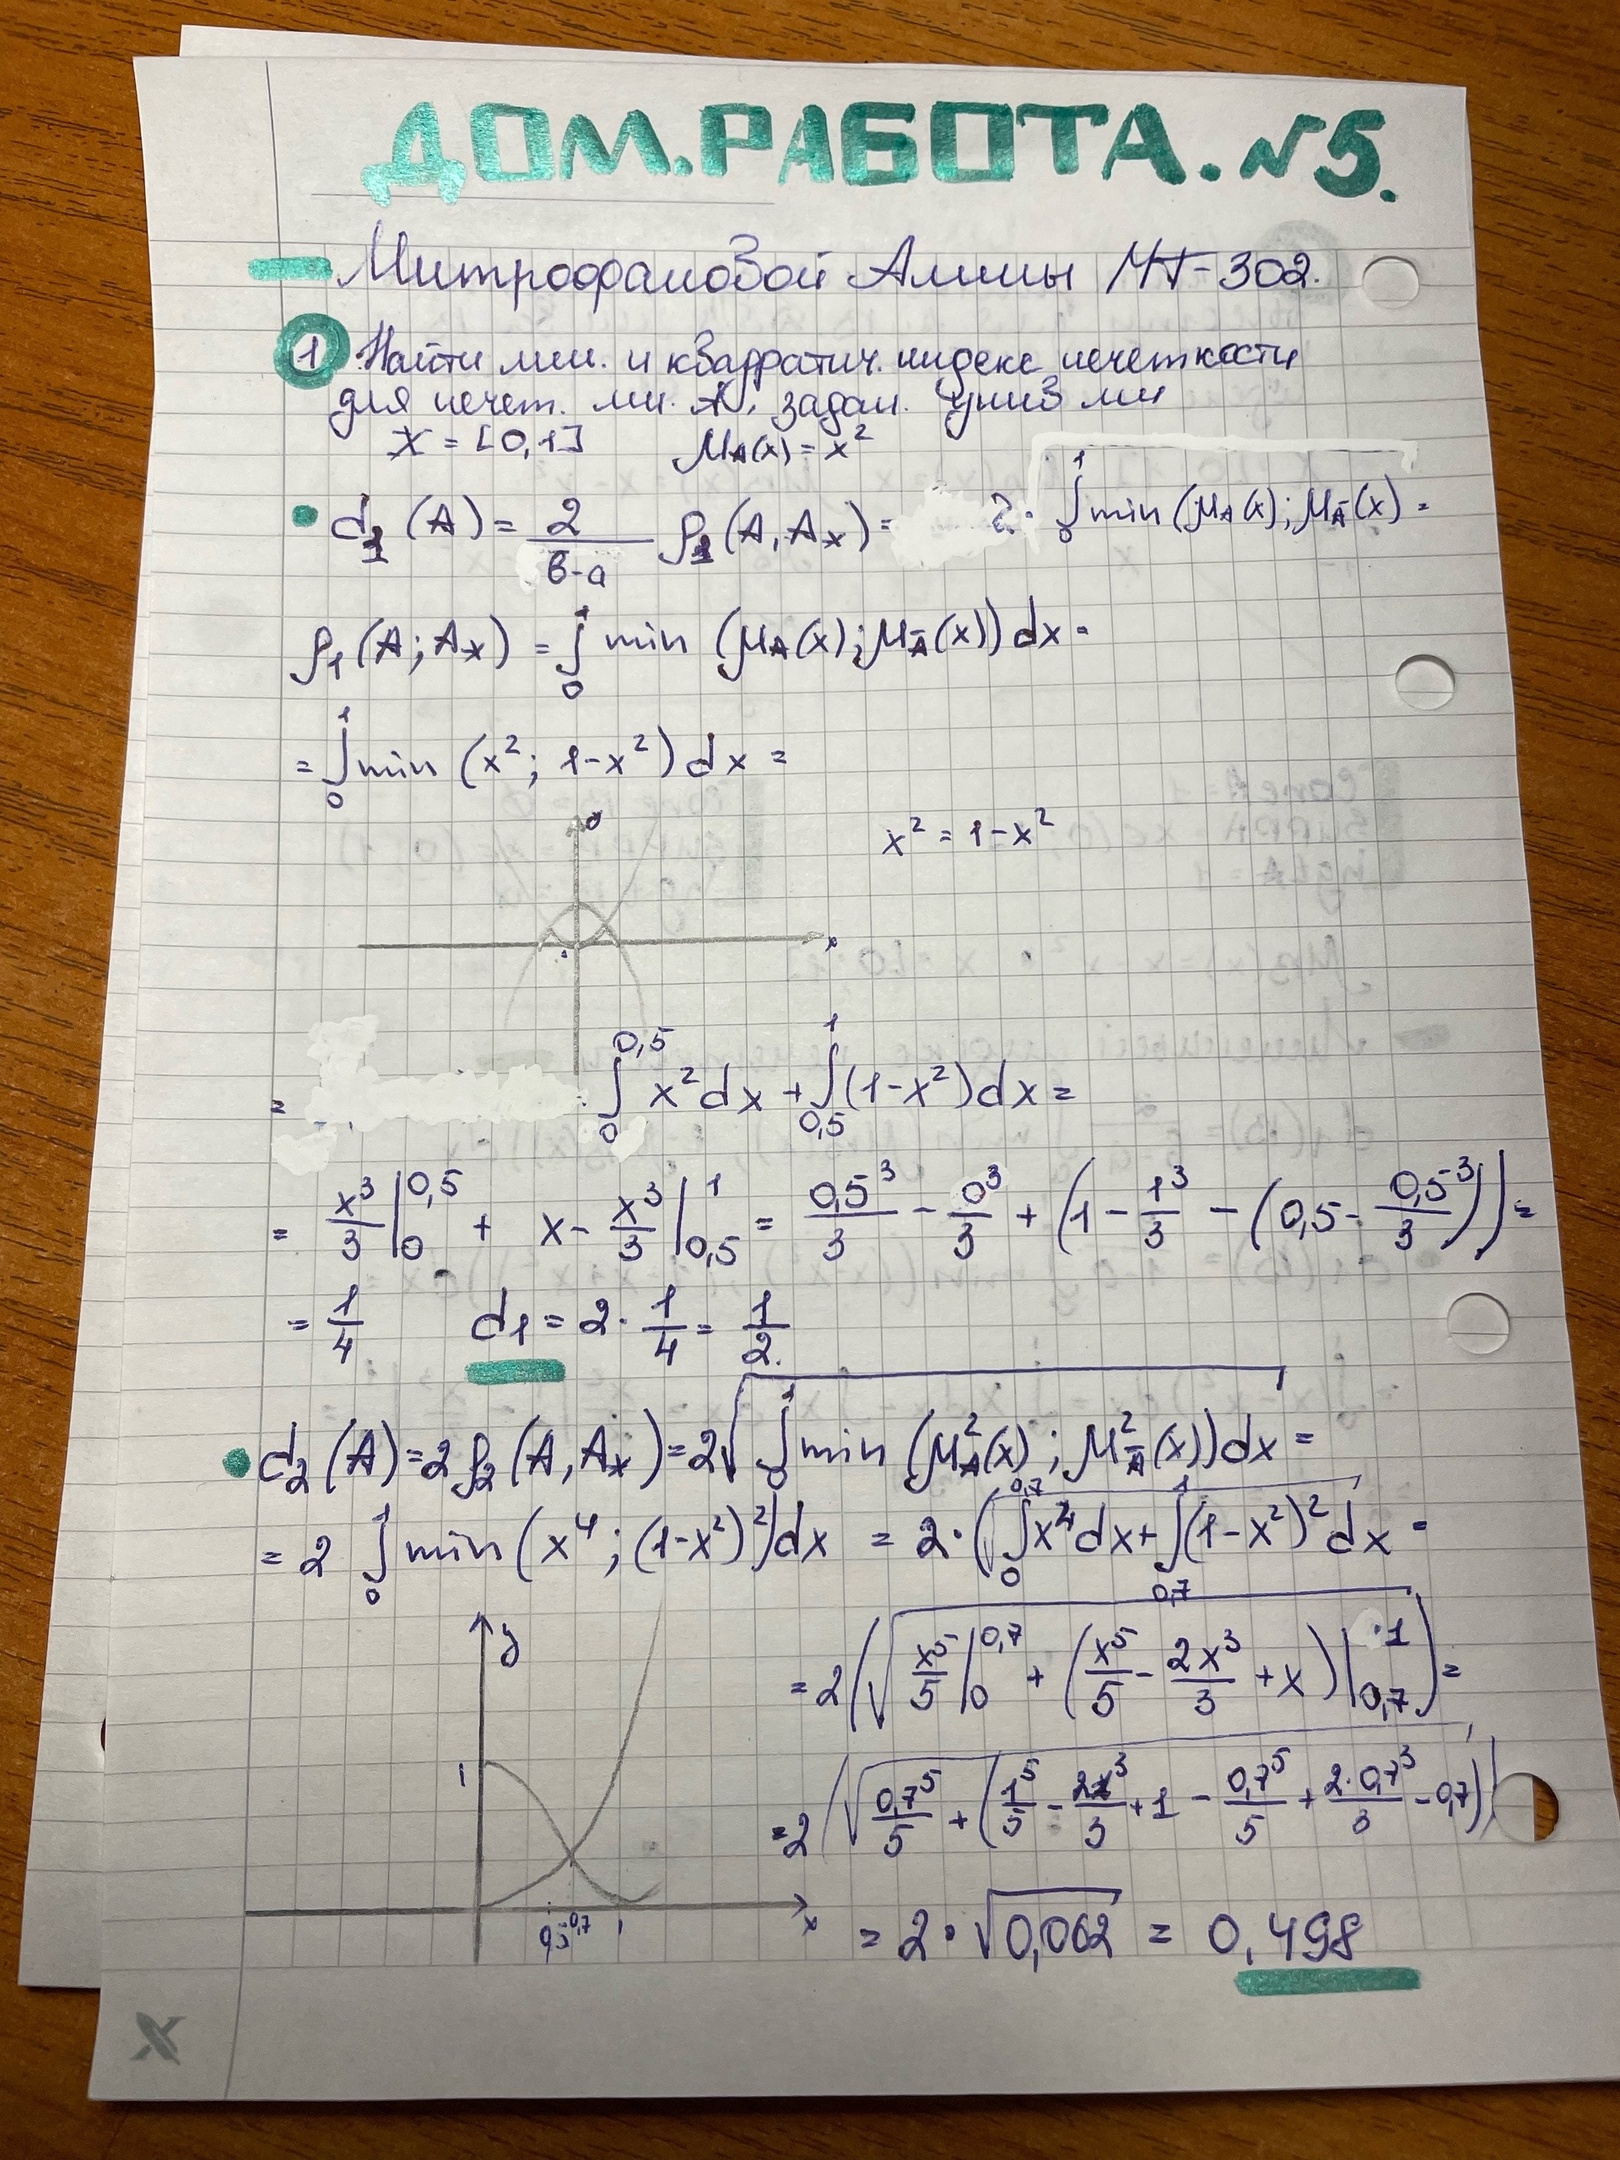 ДОМ.РАБОТА.№5.
Митрофановой Амины МТ-302.
1 Найти лин. и квадратич. индекс нечеткости
для нечет. мн. A, задан. унив мн
X = [0,1] μA(x) = x²
d₁(A) = 2/(b-a) ρ₁(A, Aₓ) = 2· ∫₀¹ min(μA(x); μĀ(x) =
ρ₁(A; Aₓ) = ∫₀¹ min (μA(x); μĀ(x)) dx =
= ∫₀¹ min (x²; 1-x²) dx =
y
x² = 1-x²
x
= ∫₀^0,5 x²dx + ∫_0,5^1 (1-x²)dx =
= x³/3 |₀^0,5 + x - x³/3 |_0,5^1 = 0,5³/3 - 0³/3 + (1 - 1³/3 - (0,5 - 0,5³/3)) =
= 1/4 d₁ = 2· 1/4 = 1/2.
d₂(A) = 2ρ₂(A, Aₓ) = 2√∫₀¹ min (μ²A(x); μ²Ā(x))dx =
= 2 ∫₀¹ min (x⁴; (1-x²)²)dx = 2·(√∫₀^0,7 x⁴dx + ∫_0,7^1 (1-x²)²dx =
y
= 2(√ x⁵/5 |₀^0,7 + (x⁵/5 - 2x³/3 + x) |_0,7^1) =
1
= 2(√ 0,7⁵/5 + (1⁵/5 - 2·1³/3 + 1 - 0,7⁵/5 + 2·0,7³/3 - 0,7))
0,5 0,7 1 x
= 2·√0,062 = 0,498